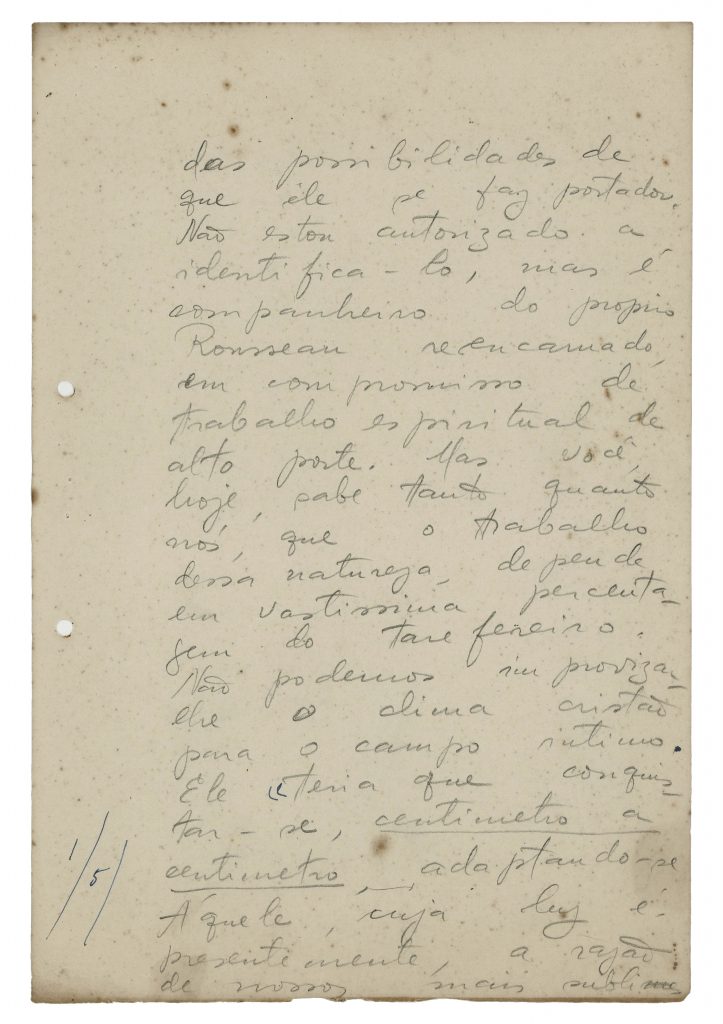 das possibilidades de
que êle se faz portador.
Não estou autorizado a
identifica-lo, mas é
companheiro do proprio
Rousseau reencarnado,
em compromisso de
trabalho espiritual de
alto porte. Mas você,
hoje, sabe tanto quanto
nós, que o trabalho
dessa natureza depende
em vastissima percenta-
gem do tarefeiro.
Não podemos improvizar-
lhe o clima cristão
para o campo intimo.
Ele teria que conquis-
tar-se, centimetro a
centimetro, adaptando-se
Áquele, cuja luz é
presentemente, a razão
de nossos mais sublimes
1/5/